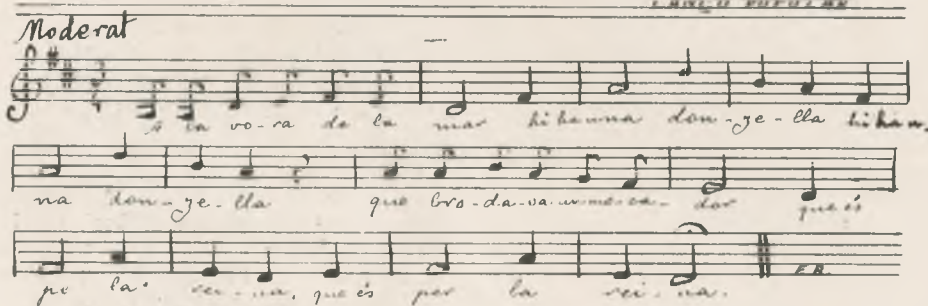 CANÇÓ POPULAR
Moderat
A la vo-ra de la mar hi ha una don-ze-lla hi ha u-
na don-ze-lla que bro-da-va un mo-ca-dor que és
pe la rei-na, que és per la rei-na.
F.R.